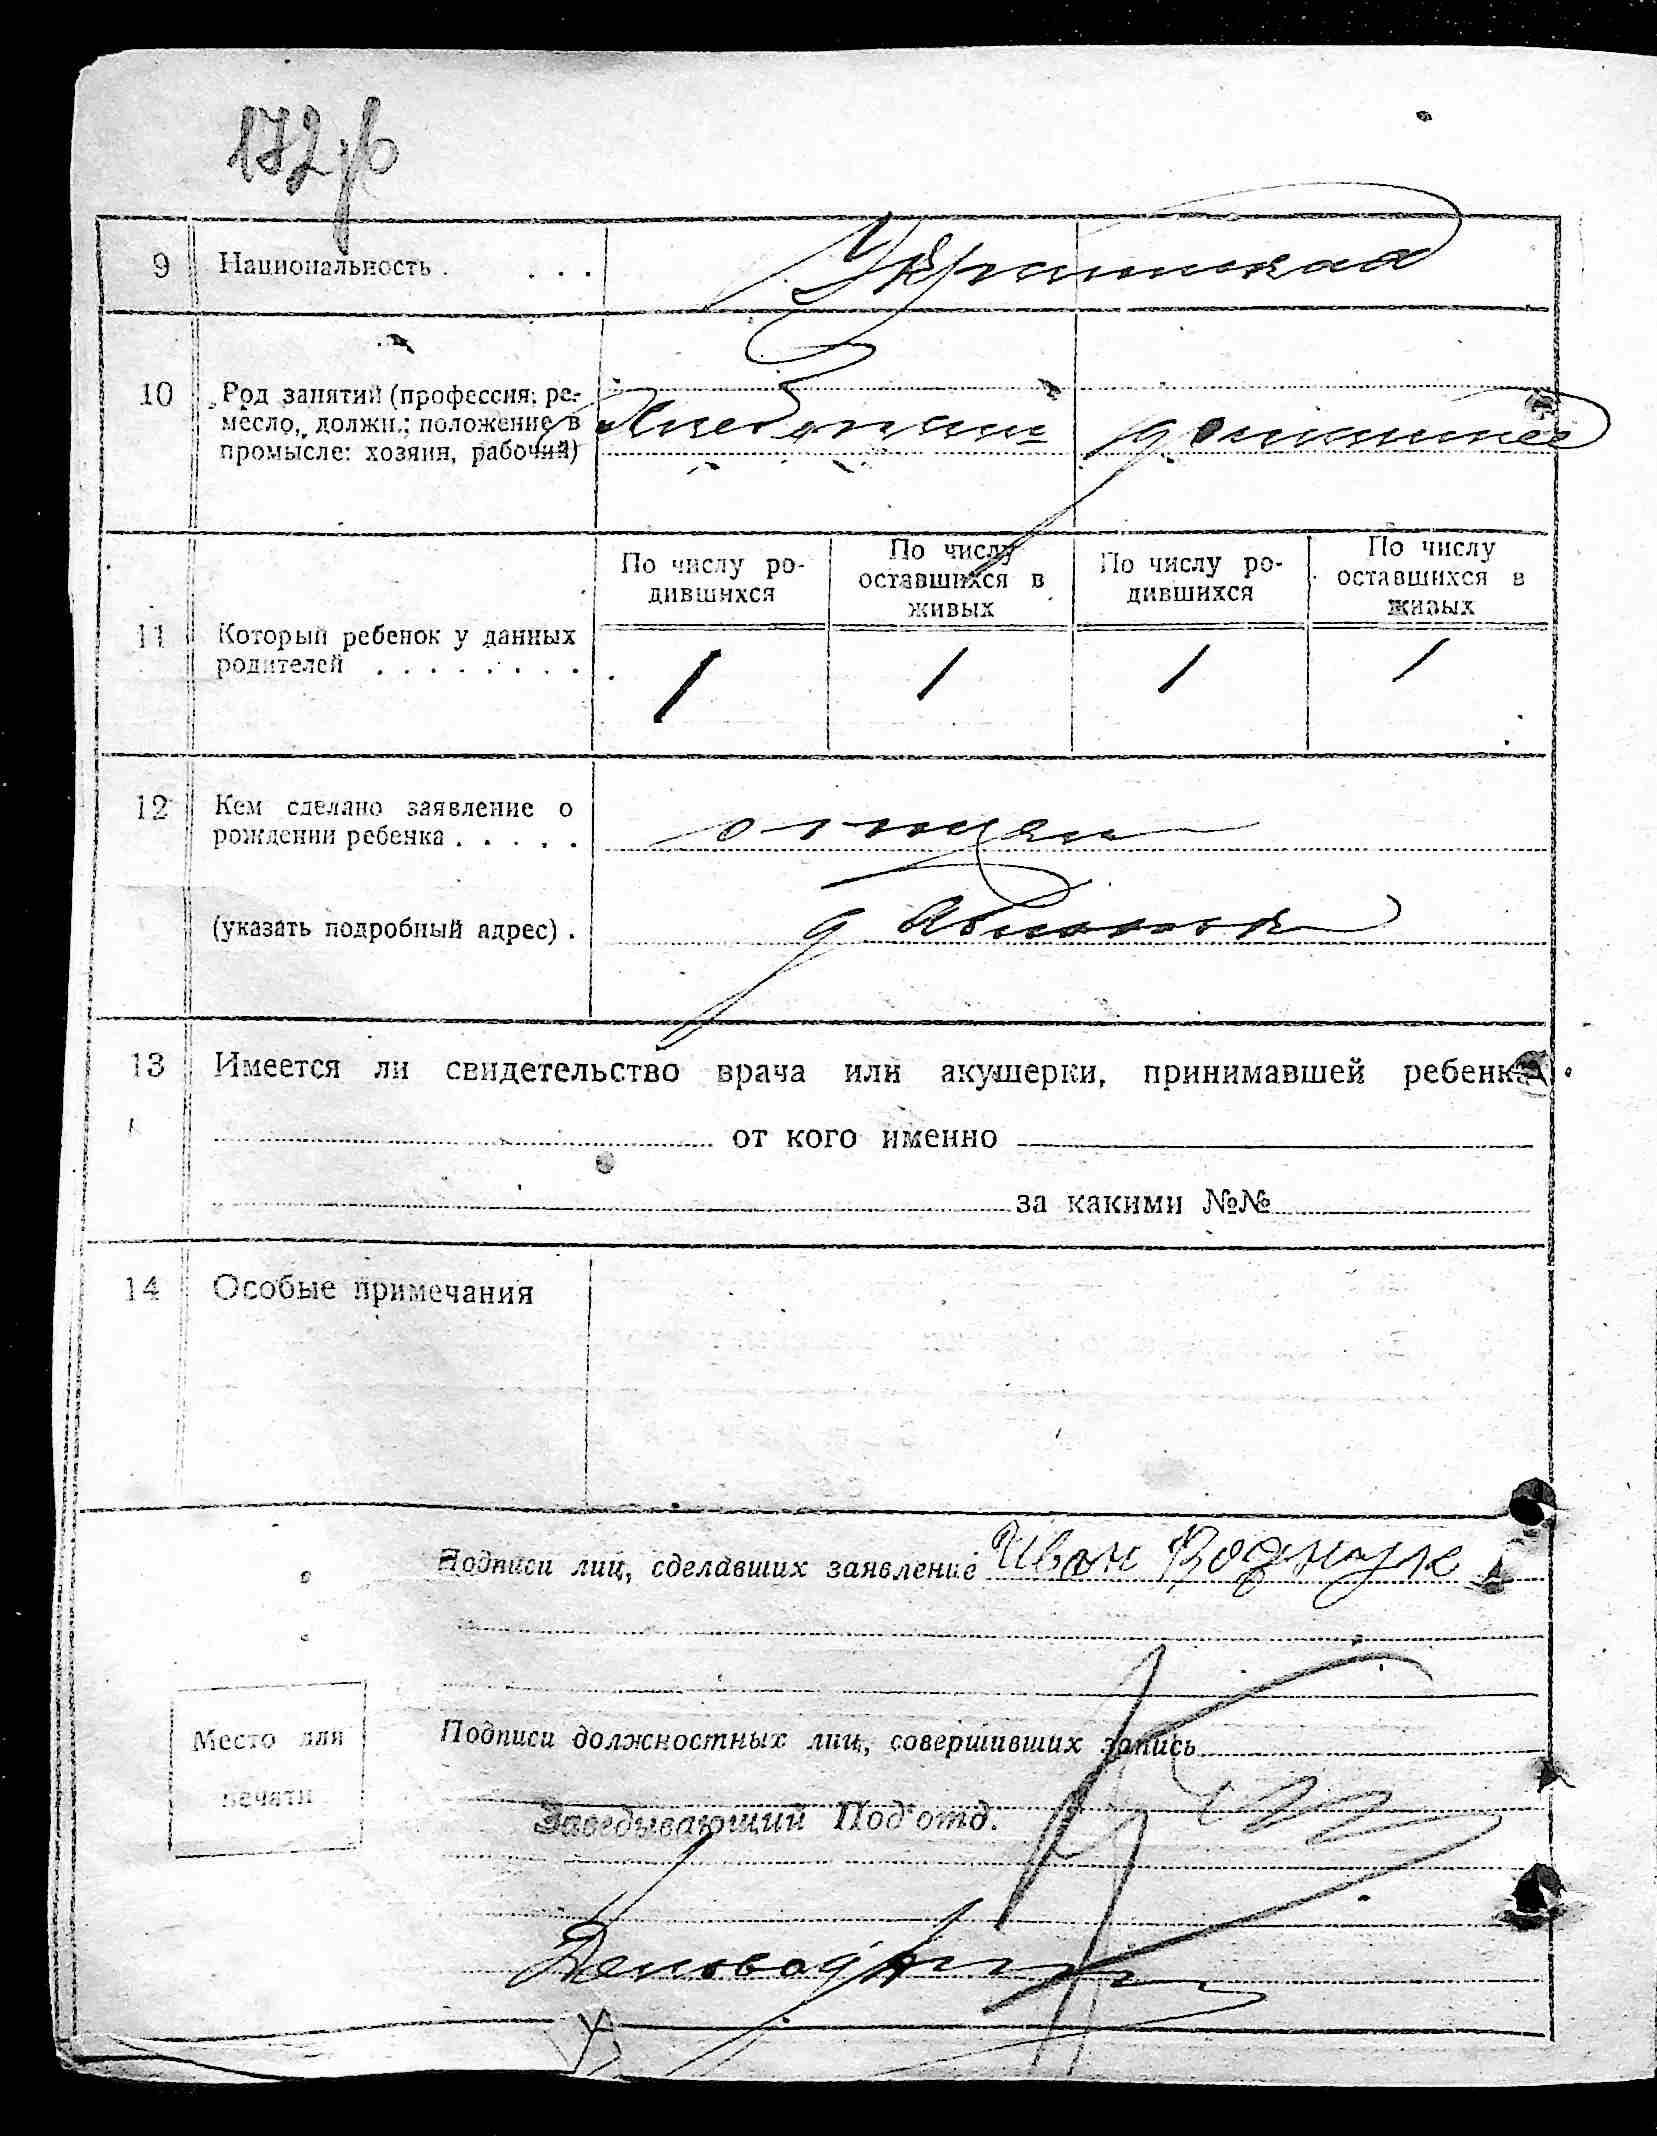 172об
9 Национальность . . . . Украинская
10 Род занятий (профессия, ре-
месло, должн.: положение в
промысле: хозяин, рабочий)
Хлебопаш домашнее
По числу ро-
дившихся
По числу
оставшихся в
живых
По числу ро-
дившихся
По числу
оставшихся в
живых
11 Который ребенок у данных
родителей . . . . . . . .
1 1 1 1
12 Кем сделано заявление о
рождении ребенка . . . . . отцем
(указать подробный адрес) . д
13 Имеется ли свидетельство врача или акушерки, принимавшей ребенка
от кого именно
за какими №№
14 Особые примечания
Подписи лиц, сделавших заявление Иван Воднчук
Подписи должностных лиц, совершивших запись
Место для
печати
Заведывающий Под'отд.
Деловод